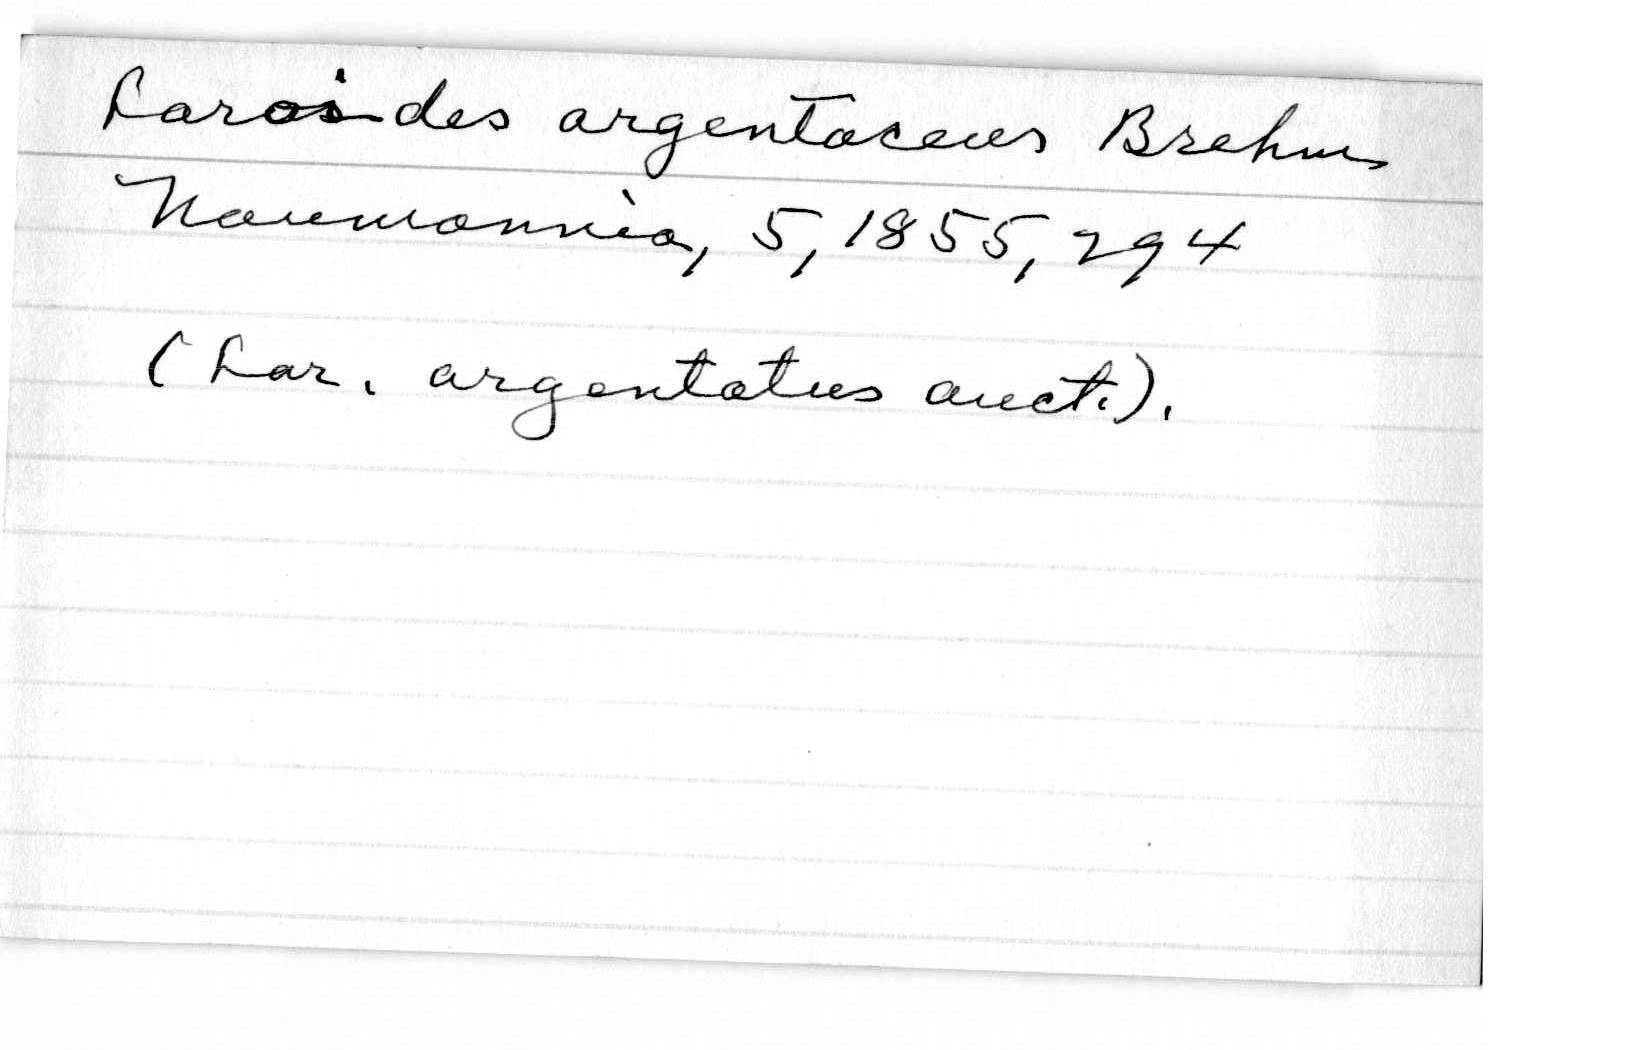 Laroides argentaceus Brehm
Naumannia, 5, 1855, 294
(Lar. argentatus auct.).